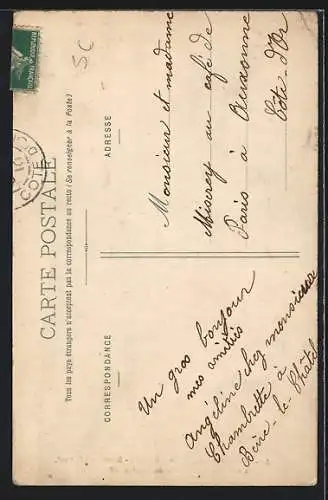 CARTE POSTALE
Tous les pays étrangers n'acceptent pas la correspondance au recto (Se renseigner à la Poste)
CORRESPONDANCE
ADRESSE
Un gros bonjour
mes amitiés
Angéline chez monsieur
Chambrette à
Beire-le-Châtel
Monsieur et madame
Miserey au café de
Paris à Auxonne
Côte-d'Or
5C
CÔTE-D